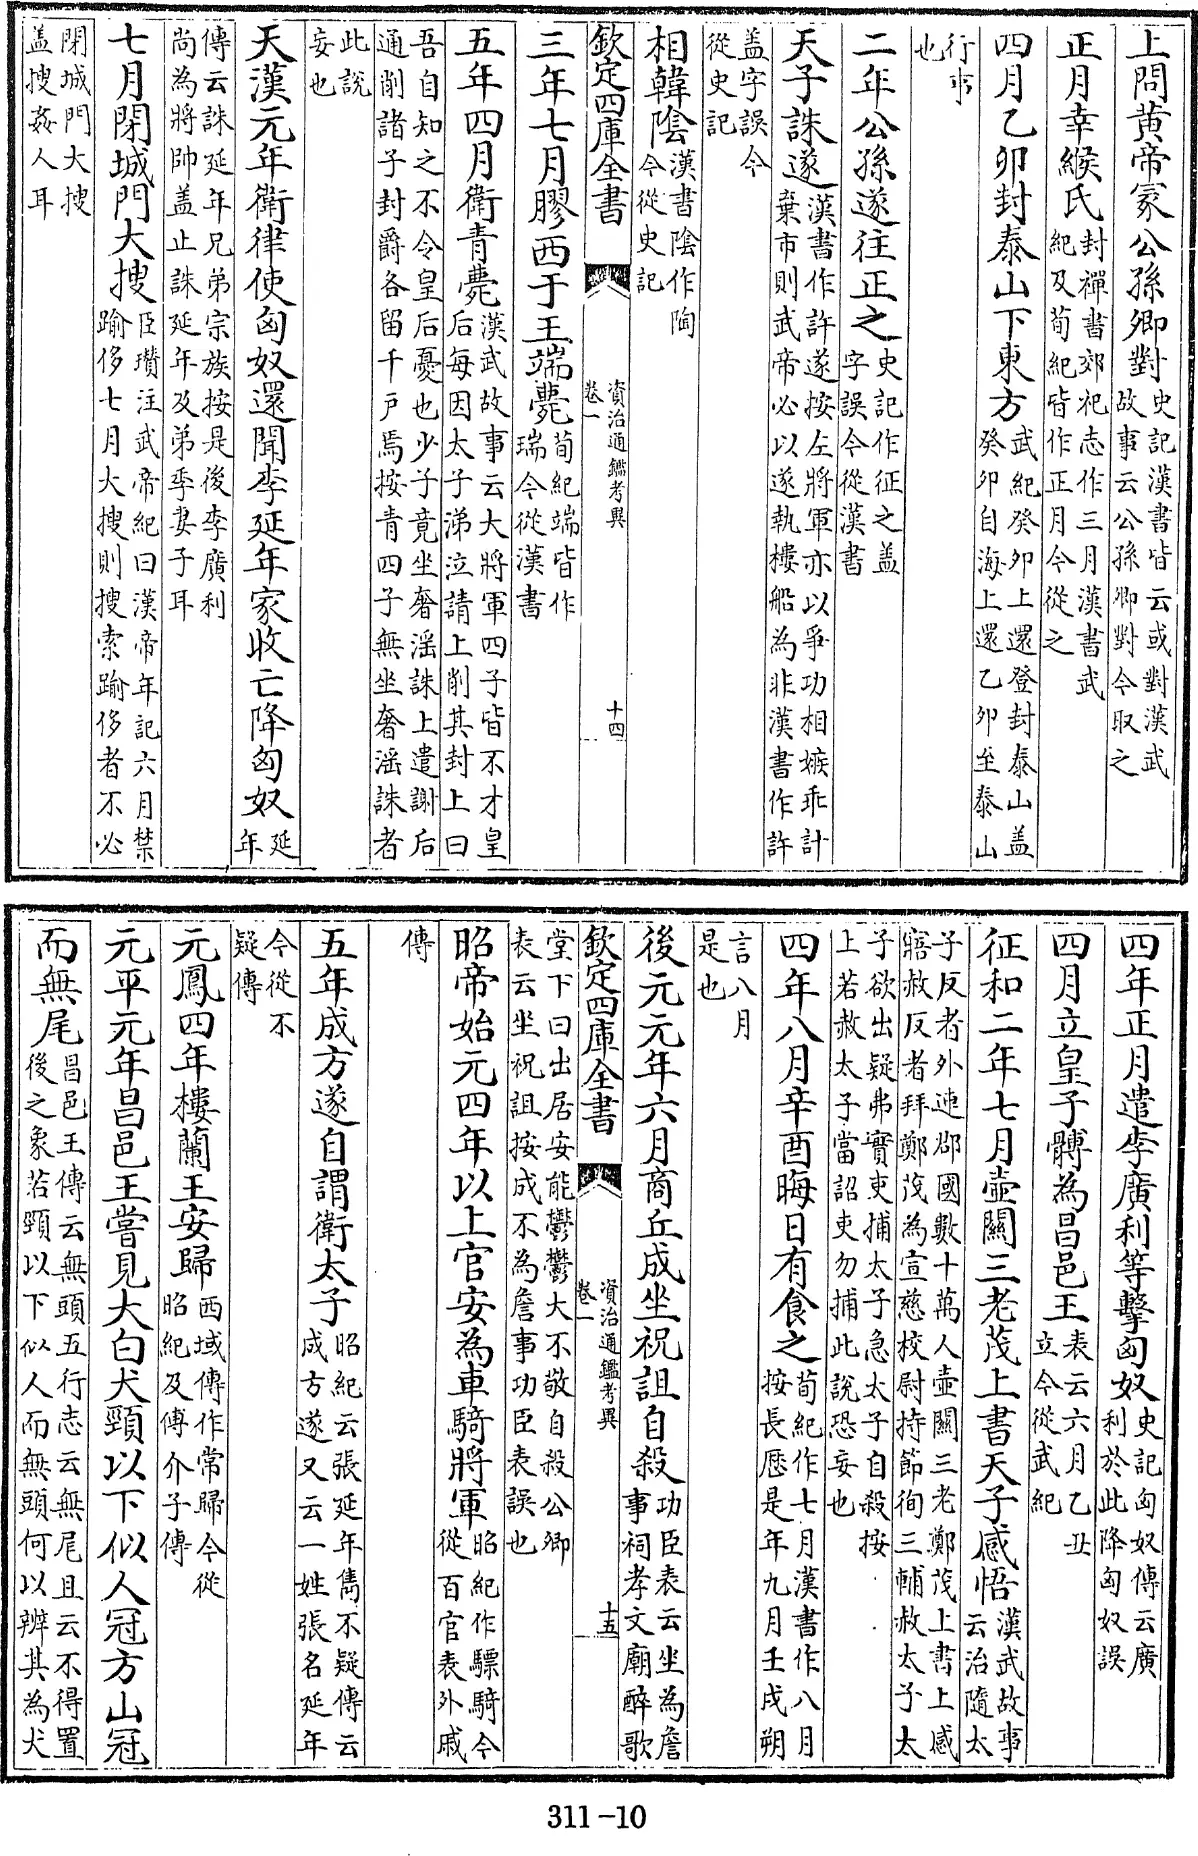 上問黄帝冢公孫卿對史記漢書皆云或對漢武故事云公孫卿對今取之
正月幸緱氏封禪書郊祀志作三月漢書武紀及荀紀皆作正月今從之
四月乙卯封泰山下東方武紀癸卯上還登封泰山盖癸卯自海上還乙卯至泰山
行事也
二年公孫遂往正之史記作征之盖字誤今從漢書
天子誅遂漢書作許遂按左將軍亦以爭功相嫉乖計棄市則武帝必以遂執樓船為非漢書作許
盖字誤今從史記
相韓陰漢書陰作陶今從史記
欽定四庫全書 資治通鑑考異卷一 十四
三年七月膠西于王端薨荀紀端皆作瑞今從漢書
五年四月衛青薨漢武故事云大將軍四子皆不才皇后每因太子涕泣請上削其封上曰
吾自知之不令皇后憂也少子竟坐奢淫誅上遣謝后通削諸子封爵各留千戸焉按青四子無坐奢淫誅者
此說妄也
天漢元年衛律使匈奴還聞李延年家收亡降匈奴延年
傳云誅延年兄弟宗族按是後李廣利尚為將帥盖止誅延年及弟季妻子耳
七月閉城門大搜臣瓚注武帝紀曰漢帝年記六月禁踰侈七月大搜則搜索踰侈者不必
閉城門大搜盖搜姦人耳
四年正月遣李廣利等擊匈奴史記匈奴傳云廣利於此降匈奴誤
四月立皇子髆為昌邑王表云六月乙丑立今從武紀
征和二年七月壺關三老茂上書天子感悟漢武故事云治隨太
子反者外連郡國數十萬人壺關三老鄭茂上書上感寤赦反者拜鄭茂為宣慈校尉持節徇三輔赦太子太
子欲出疑弗實吏捕太子急太子自殺按上若赦太子當詔吏勿捕此說恐妄也
四年八月辛酉晦日有食之荀紀作七月漢書作八月按長厯是年九月壬戌朔
言八月是也
後元元年六月商丘成坐祝詛自殺功臣表云坐為詹事祠孝文廟醉歌
欽定四庫全書 資治通鑑考異卷一 十五
堂下曰出居安能鬱鬱大不敬自殺公卿表云坐祝詛按成不為詹事功臣表誤也
昭帝始元四年以上官安為車騎將軍昭紀作驃騎今從百官表外戚
傳
五年成方遂自謂衛太子昭紀云張延年雋不疑傳云成方遂又云一姓張名延年
今從不疑傳
元鳳四年樓蘭王安歸西域傳作常歸今從昭紀及傅介子傳
元平元年昌邑王嘗見大白犬頸以下似人冠方山冠
而無尾昌邑王傳云無頭五行志云無尾且云不得置後之象若頸以下似人而無頭何以辨其為犬
311-10